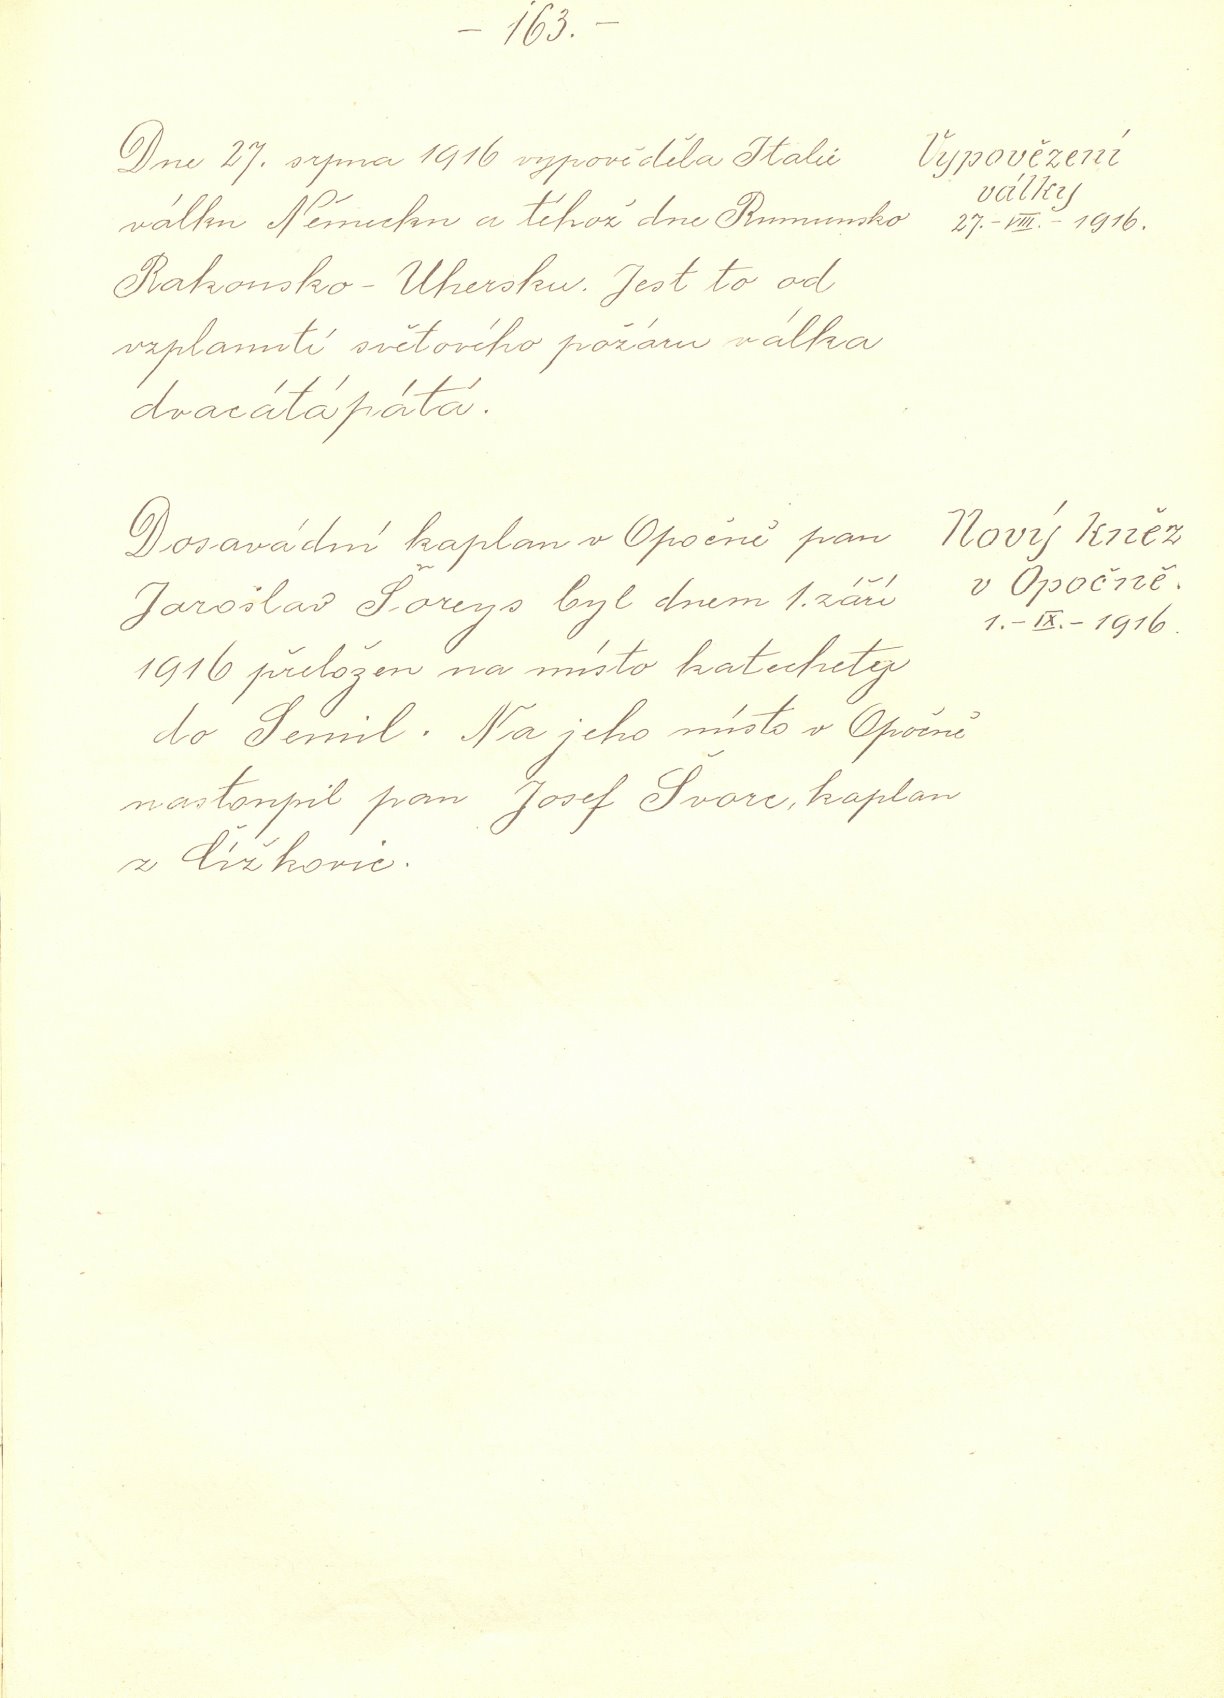 - 163. -
Dne 27. srpna 1916 vypověděla Italie
válku Německu a téhož dne Rumunsko
Rakousko - Uhersku. Jest to od
vzplanutí světového požáru válka
dvacátápátá.
Vypovězení
války
27. - VIII. - 1916.
Dosavádní kaplan v Opočně pan
Jaroslav Šoreys byl dnem 1. září
1916 přeložen na místo katechety
do Semil. Na jeho místo v Opočně
nastoupil pan Josef Švorc, kaplan
z Čížkovic.
Nový kněz
v Opočně.
1. - IX. - 1916.